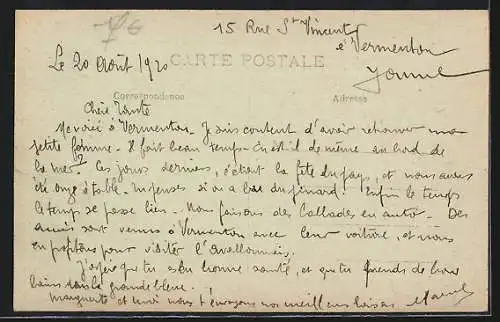 15 Rue St Vincent
à Vermenton
Yonne
Le 20 Août 1920
CARTE POSTALE
Correspondance
Adresse
Chère Tante
Me voici à Vermenton. Je suis content d'avoir retrouvé ma
petite femme. Il fait beau temps. En est-il de même au bord de
la mer? Ces jours derniers, c'était la fête du pays, et nous avons
été onze à table. Tu penses si on a bu du pinard. Enfin le temps
le temps se passe bien. Nous faisons des ballades en auto. Des
amis sont venus à Vermenton avec leur voiture, et nous
en profitons pour visiter l'avallonnais.
J'espère que tu es en bonne santé, et que tu prends de bons
bains dans la grande bleue.
Marguerite et moi nous t'envoyons nos meilleurs baisers